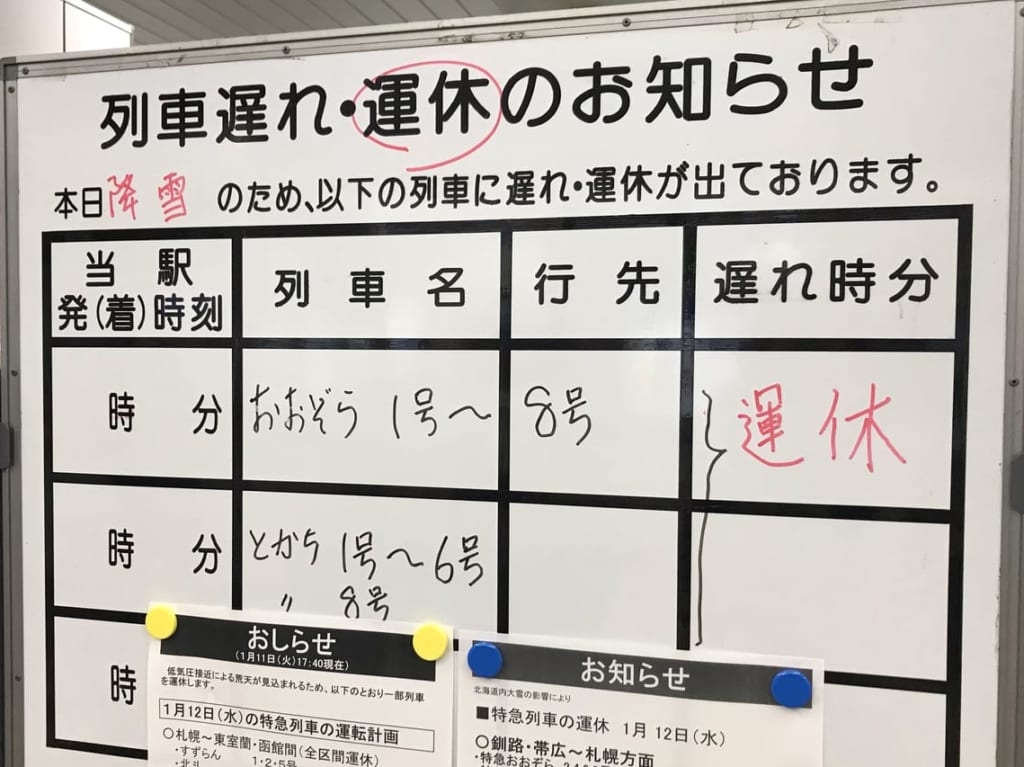 列車遅れ・運休のお知らせ
本日降雪のため、以下の列車に遅れ・運休が出ております。
当駅発(着)時刻 列車名 行先 遅れ時分
時 分 おおぞら 1号〜 8号 運休
時 分 とかち 1号〜6号
〃 8号
時
おしらせ
(1月11日(火)17:40現在)
低気圧接近による荒天が見込まれるため、以下のとおり一部列車
を運休します。
1月12日(水)の特急列車の運転計画
○札幌〜東室蘭・函館間(全区間運休)
・すずらん 1・2・5号
・北斗
お知らせ
北海道内大雪の影響により
■特急列車の運休 1月12日(水)
○釧路・帯広〜札幌方面
・特急おおぞら